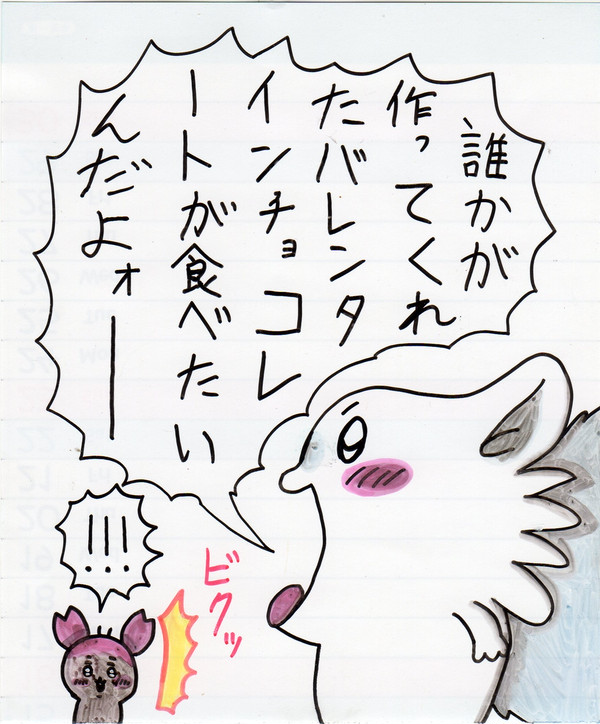 誰かが
作ってくれ
たバレンタ
インチョコレ
ートが食べたい
んだよォー
!!!
ビクッ